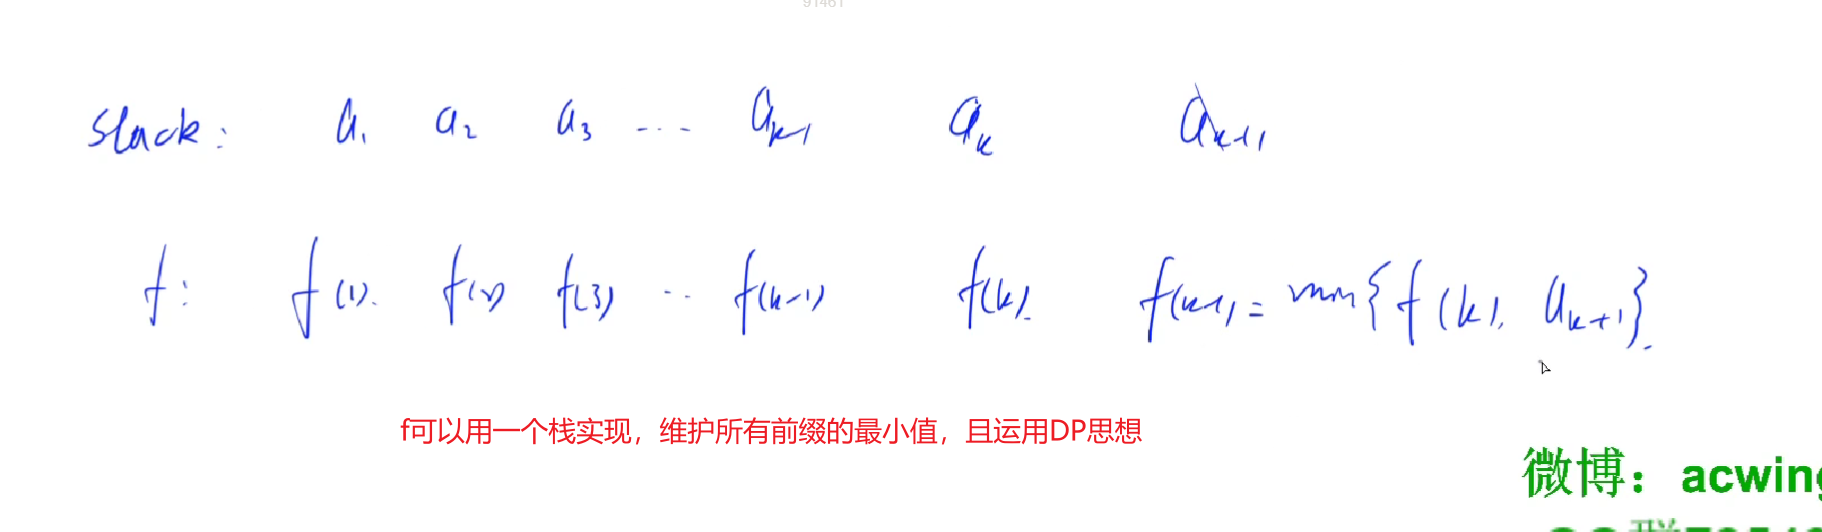 91461
stack: a1 a2 a3 ... ak-1 ak ak+1
f: f(1). f(2) f(3) .. f(k-1) f(k). f(k+1) = min{f(k), ak+1}.
f可以用一个栈实现，维护所有前缀的最小值，且运用DP思想
微博：acwing